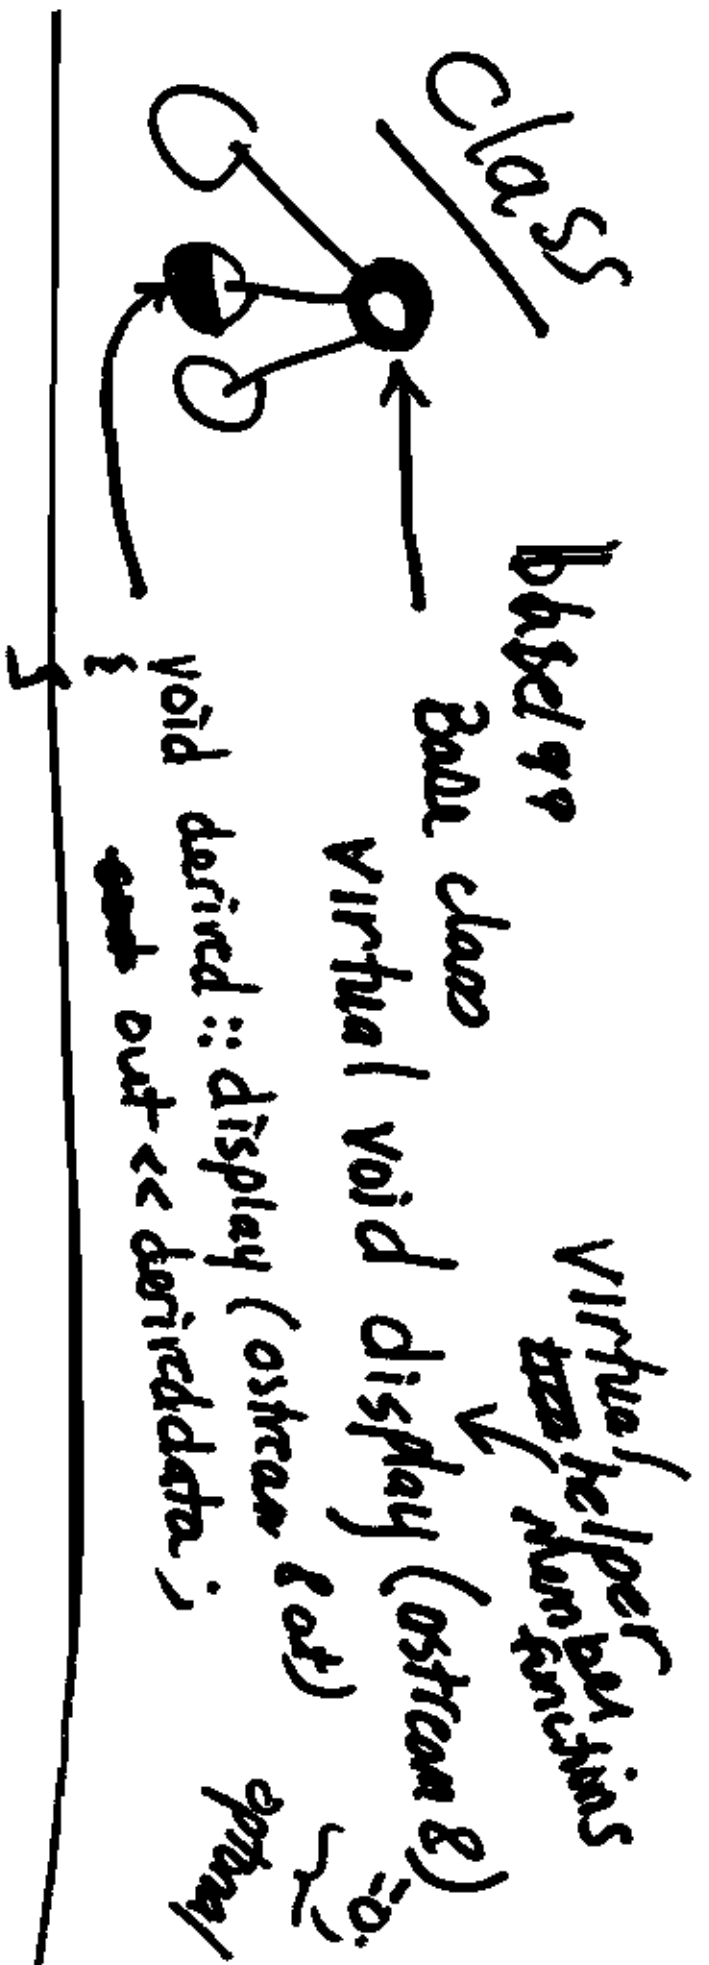 class
Virtual helper
member
functions
Base class
virtual void display (ostream &) =0;
optional
void derived :: display (ostream & out)
{
out << deriveddata;
}